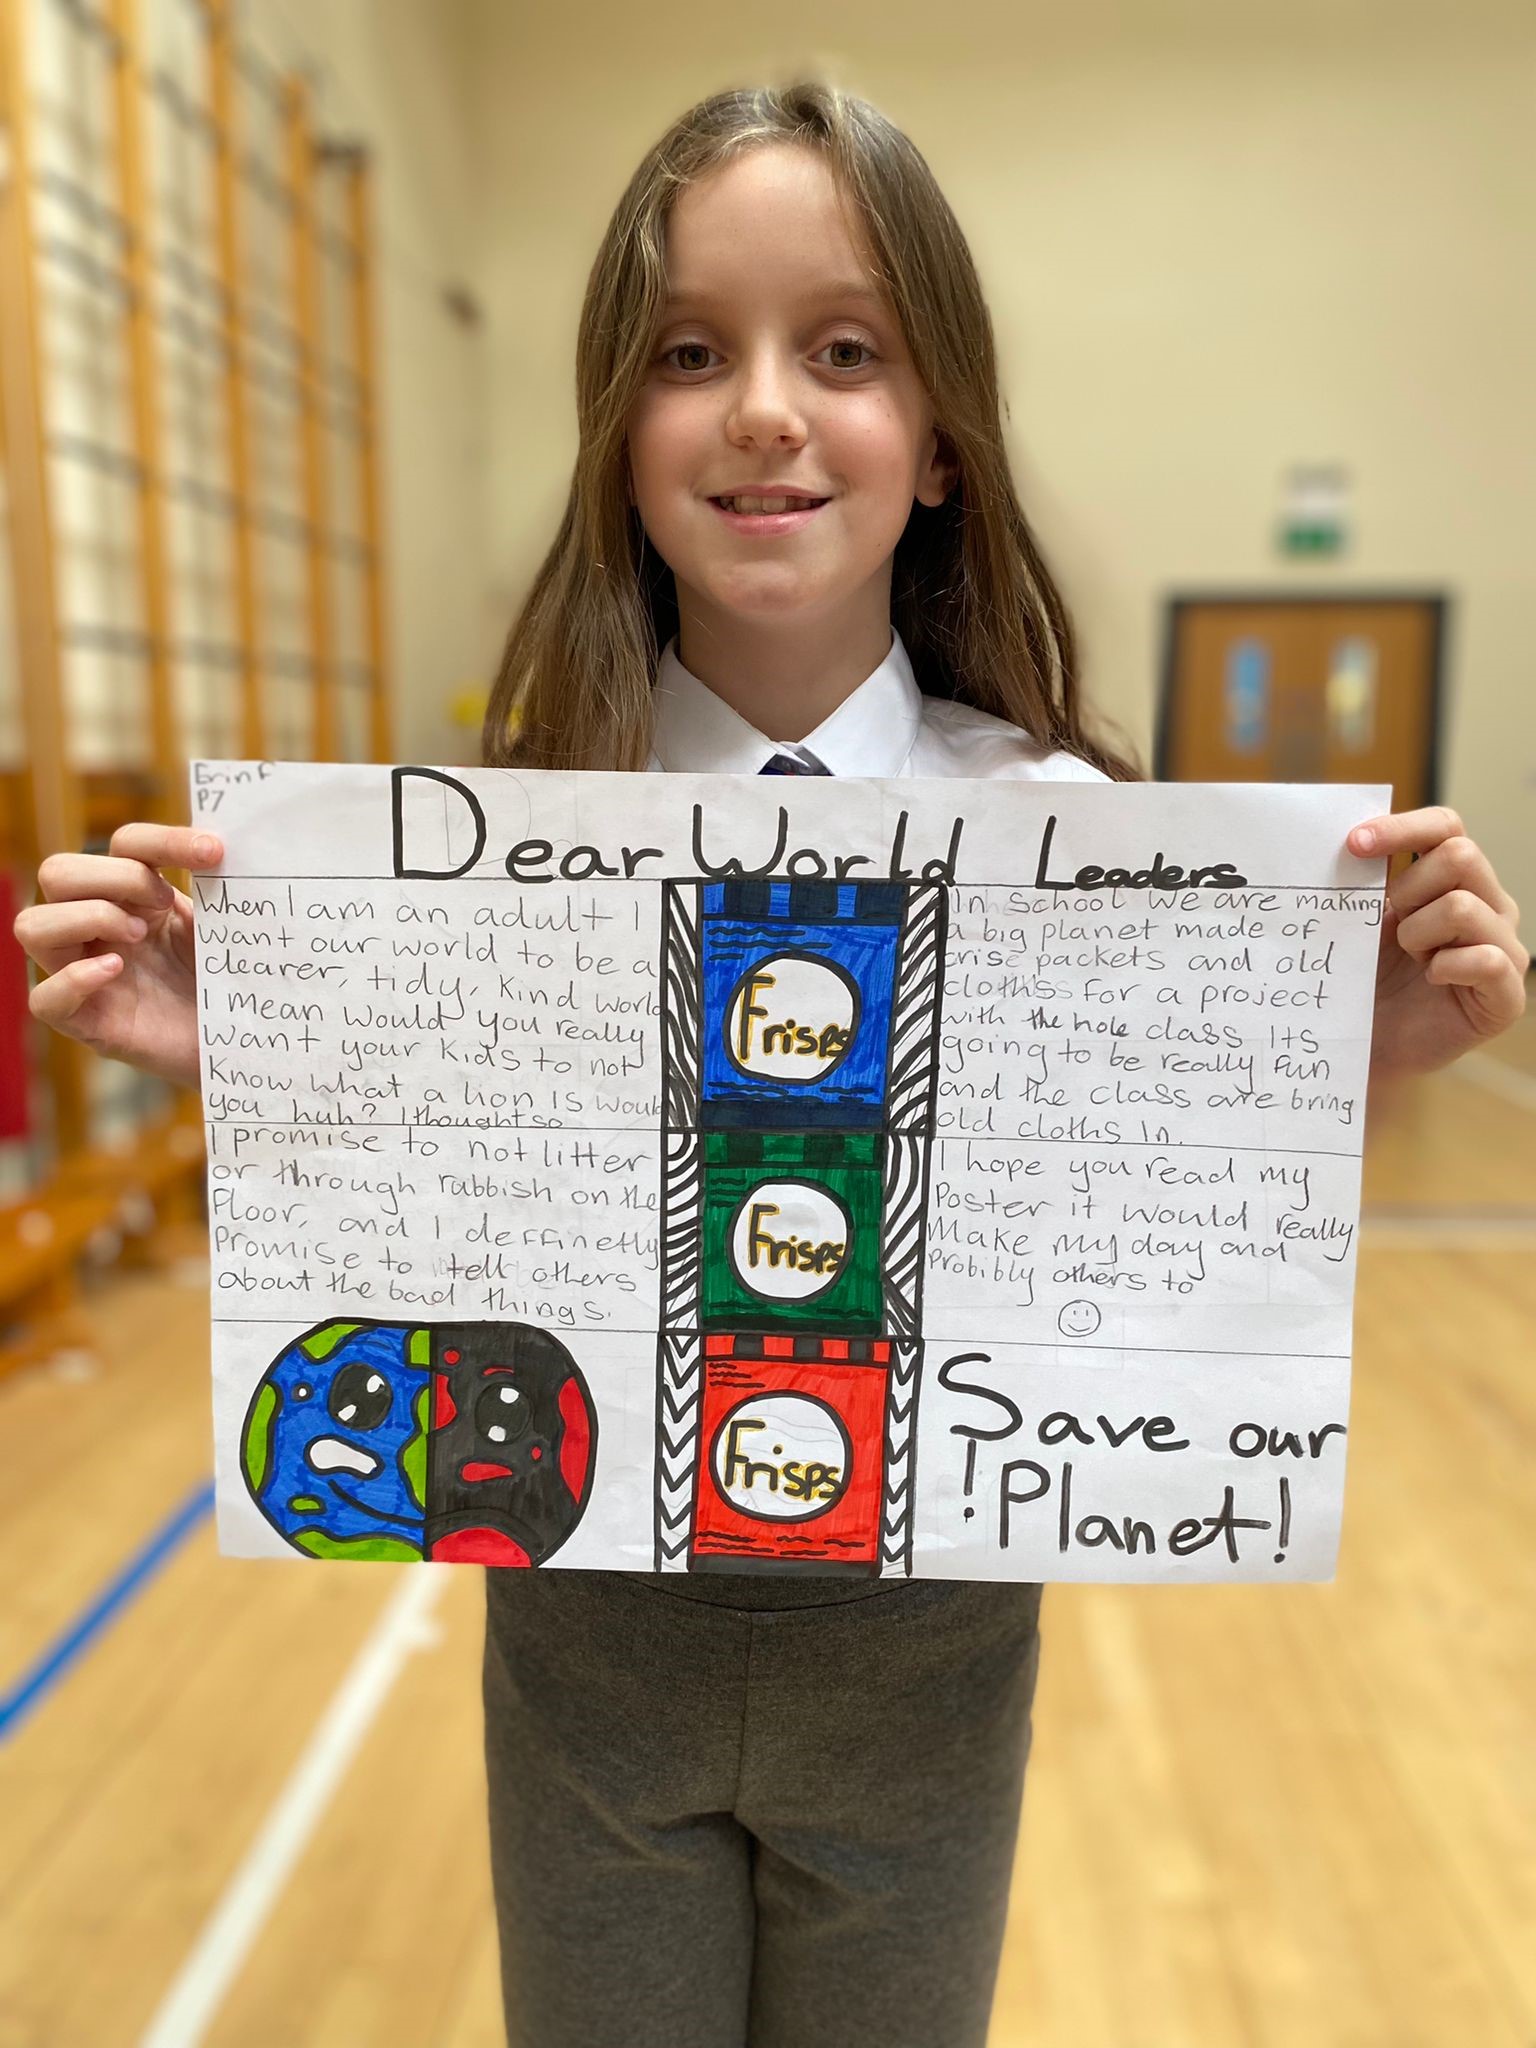 Erin F
P7
Dear World Leaders
When I am an adult I
want our world to be a
clearer, tidy, kind world
I mean would you really
want your kids to not
know what a lion is would
you huh? I thought so
I promise to not litter
or through rubbish on the
floor, and I deffinetly
Promise to tell others
about the bad things.
Frisps
Frisps
Frisps
In school we are making
a big planet made of
crisp packets and old
cloths for a project
with the hole class Its
going to be really fun
and the class are bring
old cloths In.
I hope you read my
Poster it would really
Make my day and
Probibly others to
Save our
! Planet!